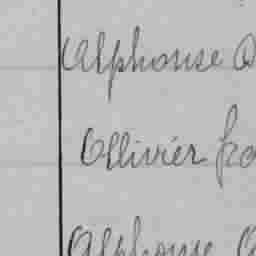 Alphonse
Ollivier
Alphonse